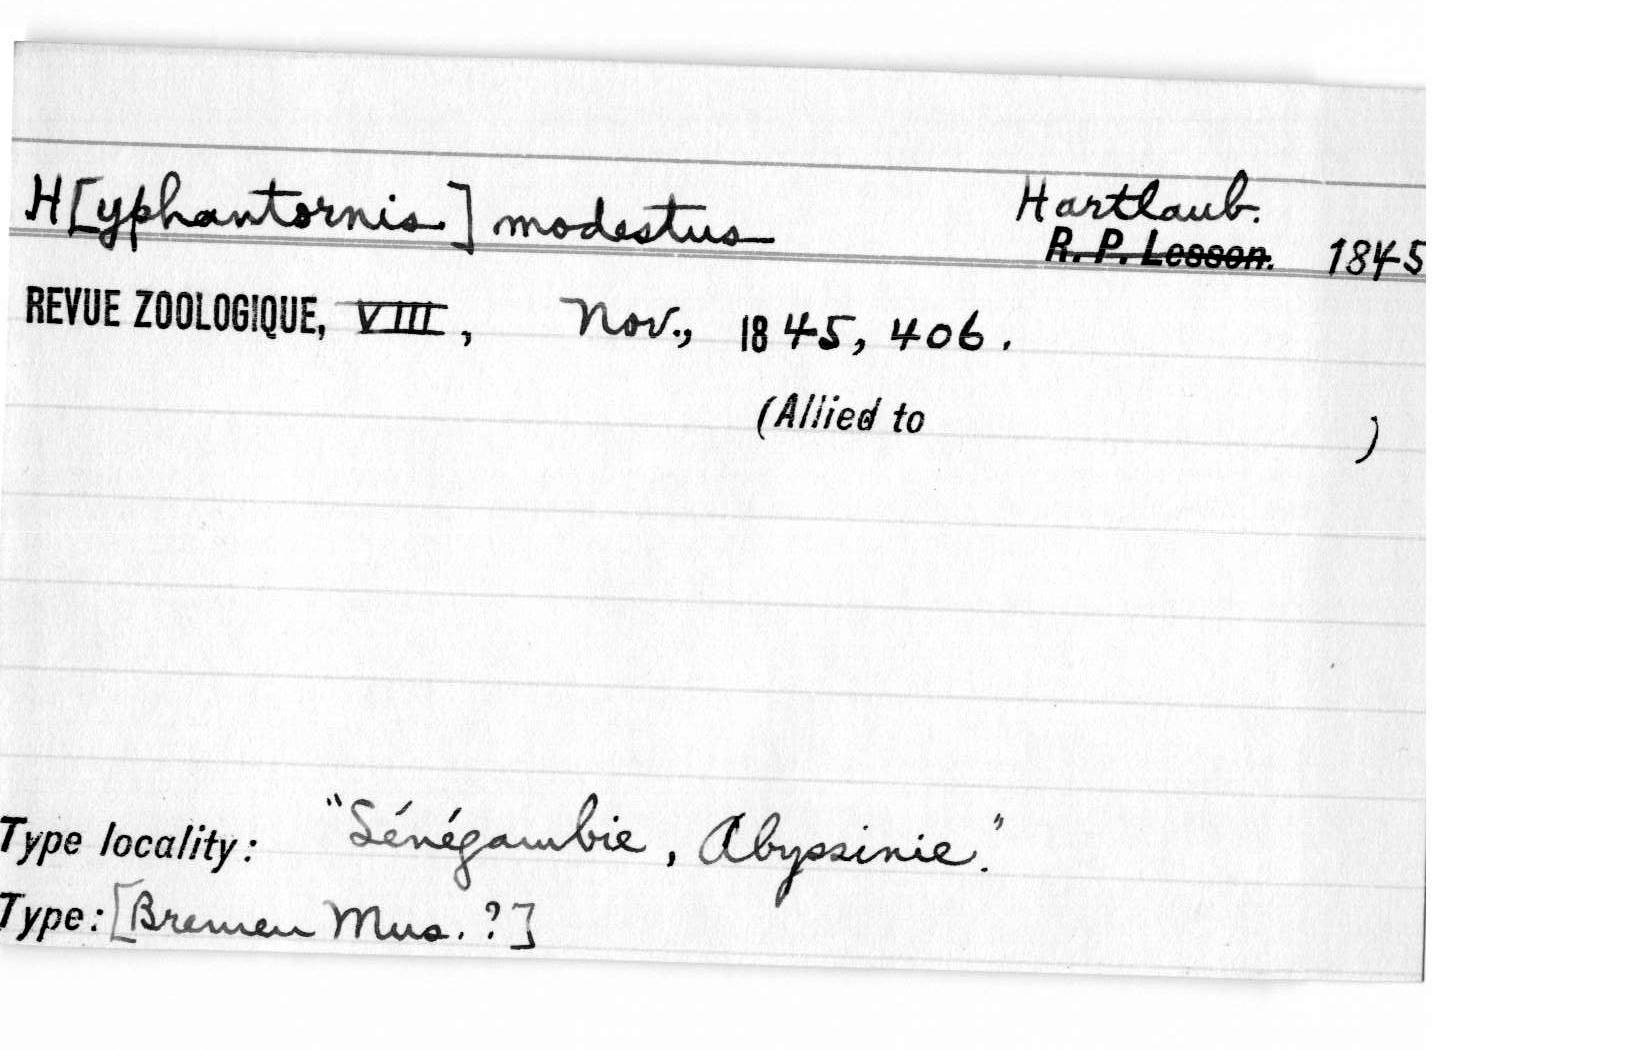 H[yphantornis] modestus Hartlaub.
R. P. Lesson. 1845
REVUE ZOOLOGIQUE, VIII, Nov., 1845, 406.
(Allied to )
Type locality: "Sénégambie, Abyssinie."
Type: [Bremen Mus. ?]